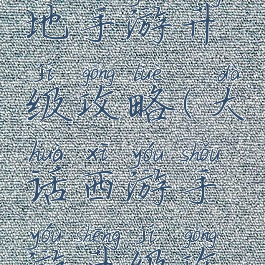 地手游升
jí gōng lüè dà
级攻略(大
huà xī yóu shǒu
话西游手
yóu shēng jí gōng